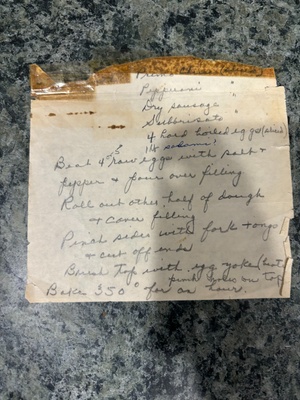 Pepperoni "
Dry sausage "
Sabbrisato "
4 hard boiled eggs (sliced)
1# salami
Beat 4 5 raw eggs with salt +
pepper + pour over filling
Roll out other half of dough
+ cover filling
Pinch sides with fork + ongs
+ cut off ends
Brush top with egg yoke (beat)
pinch holes on top
Bake 350° for an hour.